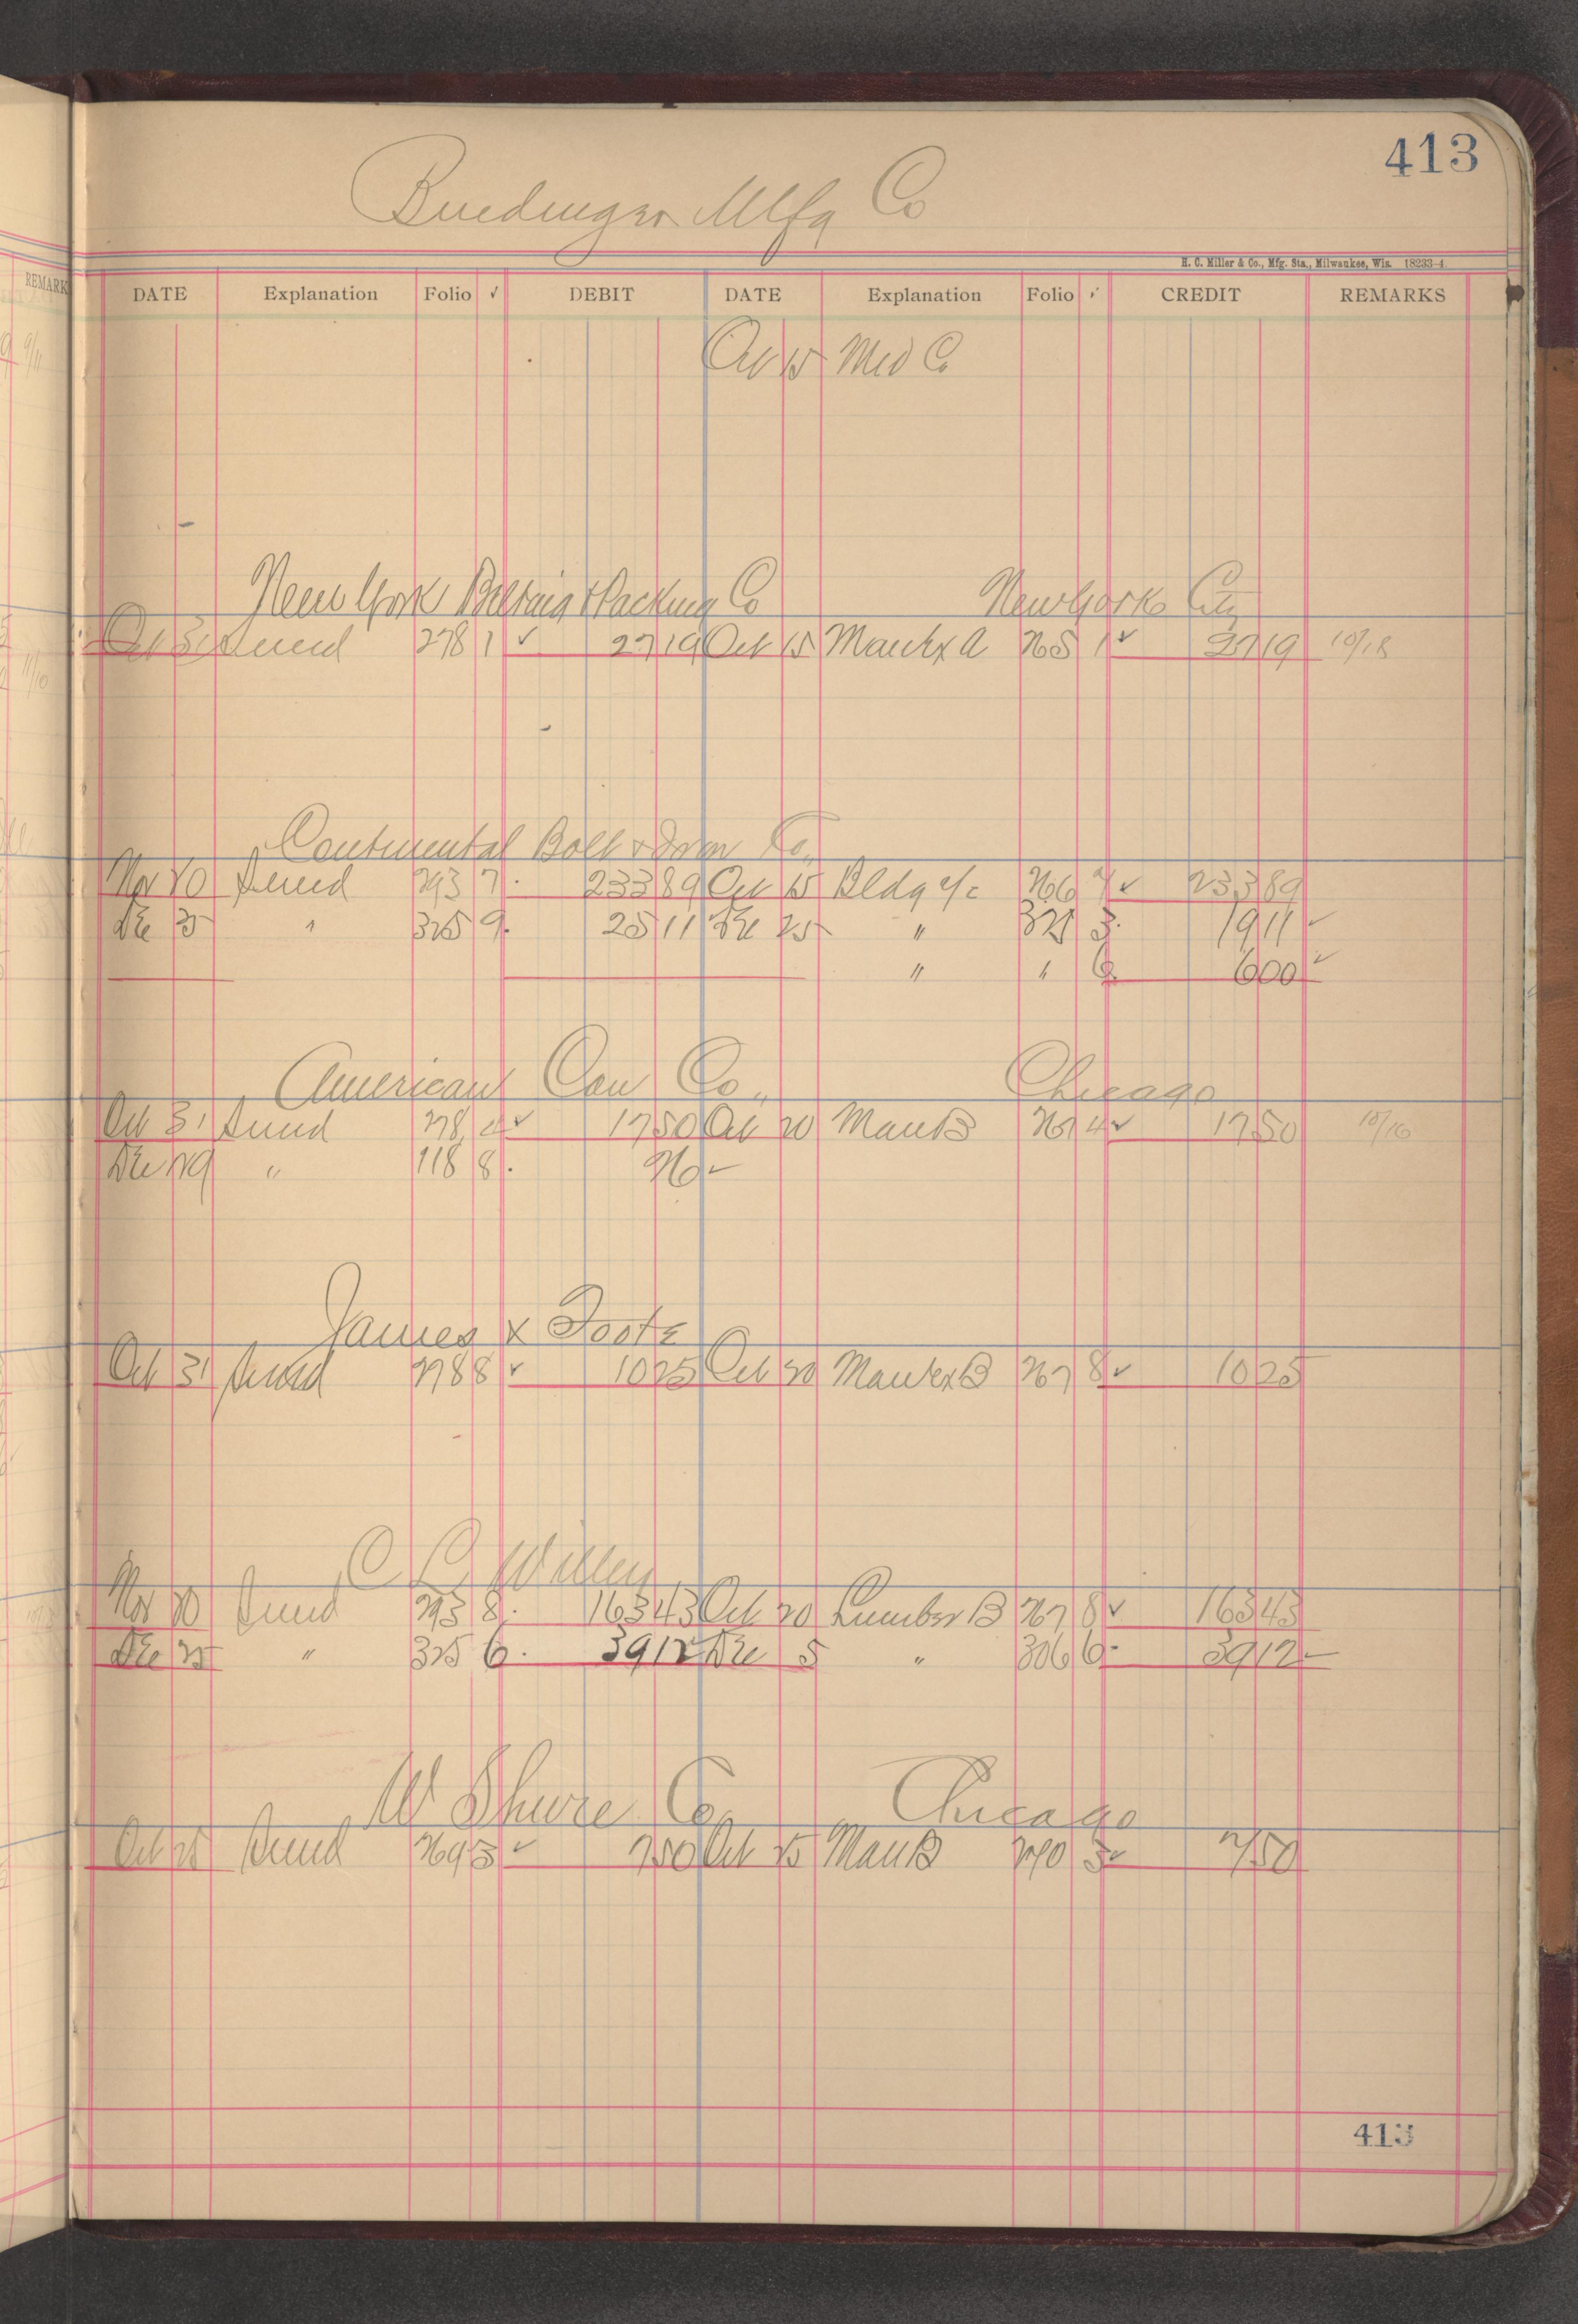 413
Mfg Co
H. C. Miller & Co., Mfg. Sta., Milwaukee, Wis. 18233-4
REMARK
DATE Explanation Folio ✓ DEBIT DATE Explanation Folio ✓ CREDIT REMARKS
Oct 15 Med Co
New York Belting & Packing Co New York City
Oct 31 Sund 278 1 ✓ 27 19 Oct 15 265 1 ✓ 27 19 10/18
Continental Bolt & Iron Co.
Nov 20 Sund 293 7 . 233 89 Oct 15 Bldg a/c 266 ✓ 233 89
Dec 25 " 325 9. 25 11 Dec 25 " 321 3. 19 11 ✓
" " 6. 6 00 ✓
American Can Co., Chicago
Oct 31 Sund 278 4 ✓ 17 50 Oct 20 Man B 267 4 ✓ 17 50 10/16
Dec 29 " 118 8. 20 -
James & Foote
Oct 31 Sund 278 8 ✓ 10 25 Oct 20 B 267 8 ✓ 10 25
C L Willey
Nov 20 Sund 293 8. 163 43 Oct 20 Lumber B 267 8 ✓ 163 43
Dec 25 " 325 6. 39 12 Dec 5 " 306 6 - 39 12 -
W Shure Co Chicago
Oct 25 Sund 269 3 ✓ 7 50 Oct 25 Man B 270 3 ✓ 7 50
413